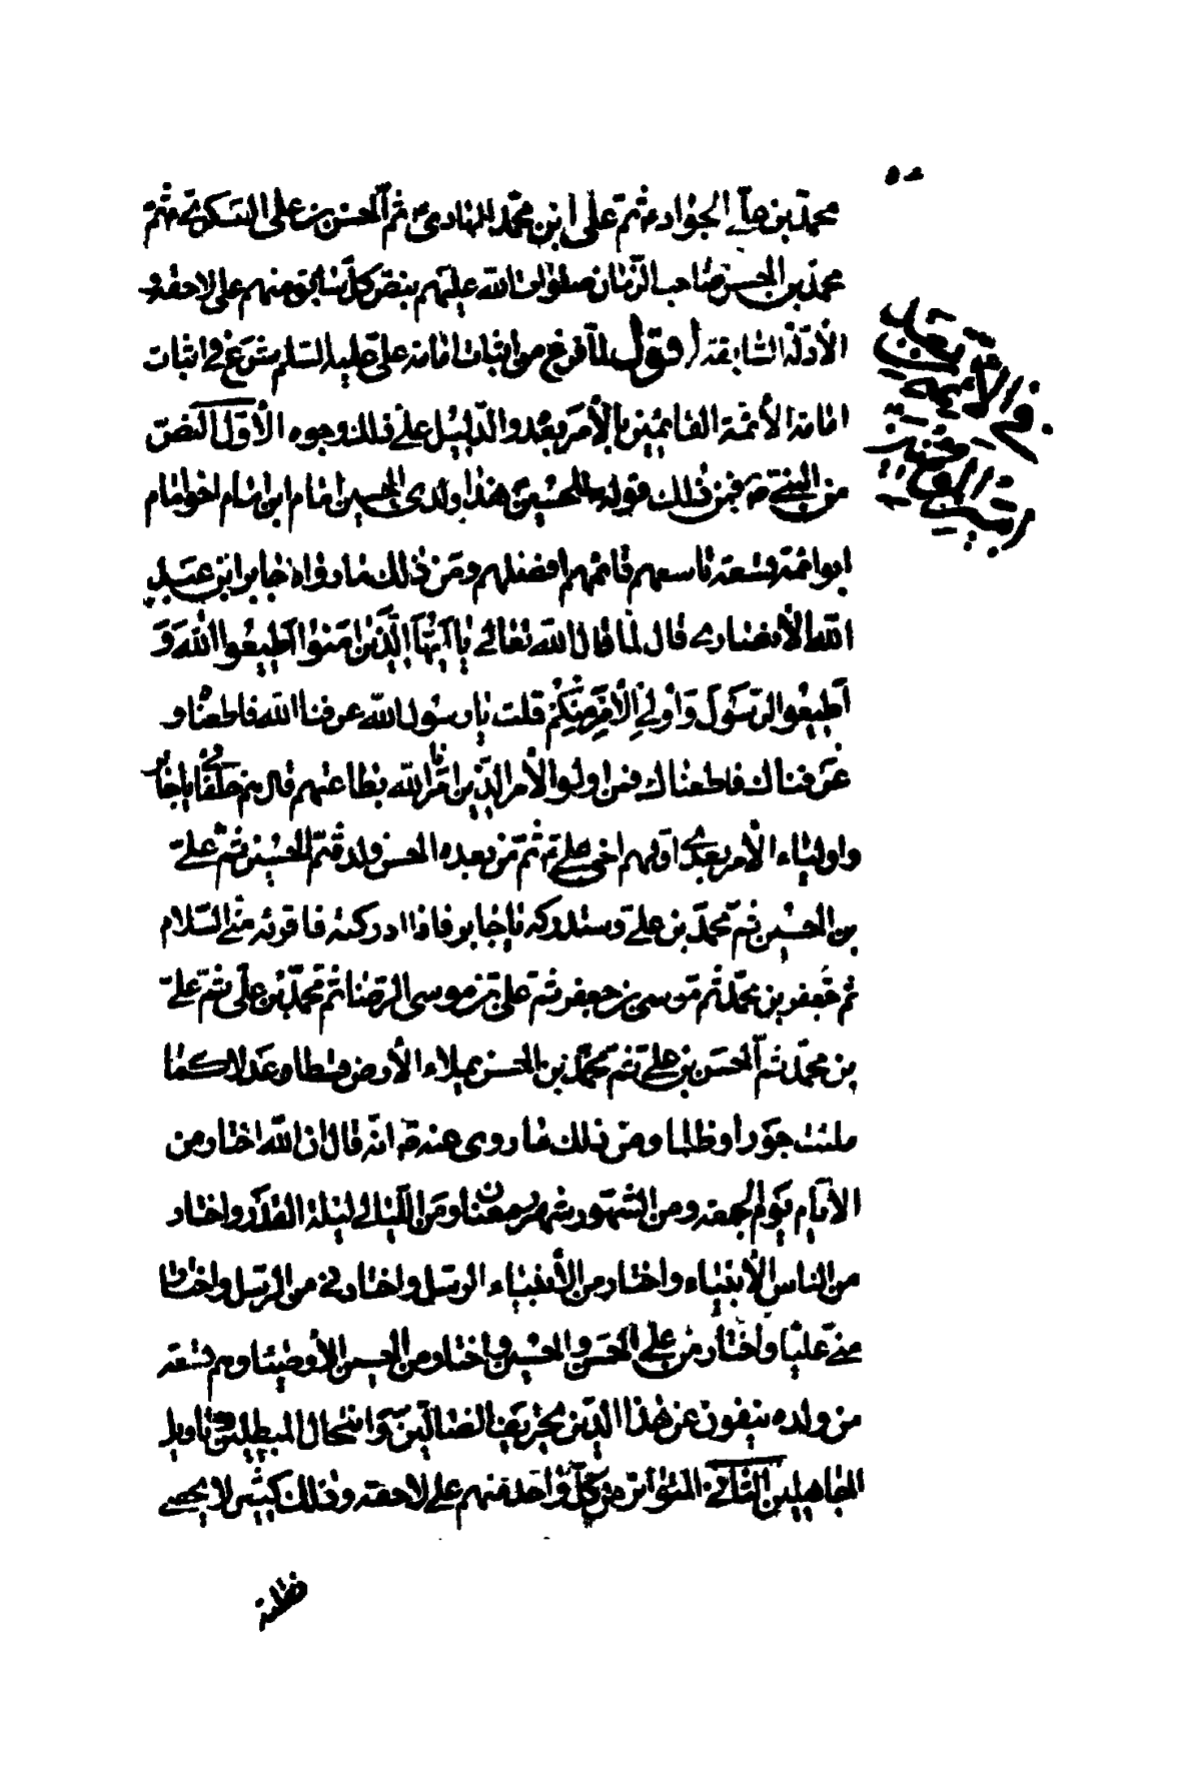 محمد بن علي الجواد ثم علي ابن محمد الهادي ثم الحسن بن علي العسكري ثم
محمد بن الحسن صاحب الزمان صلوات الله عليهم بنص كل سابق منهم على لاحقه و
الأدلة السابقة اقول لما فرغ من اثبات امامة علي عليه السلم شرع في اثبات
امامة الأئمة القائمين بالأمر بعده والدليل على ذلك وجوه الأول النص
من النبي ص فمن ذلك قوله للحسين هذا ولدي الحسين امام ابن امام اخو امام
ابو ائمة تسعة تاسعهم قائمهم افضلهم ومن ذلك ما رواه جابر ابن عبد
الله الأنصاري قال لما قال الله تعالى يا ايها الذين امنوا اطيعوا الله و
اطيعوا الرسول واولي الأمر منكم قلت يا رسول الله عرفنا الله فاطعناه و
عرفناك فاطعناك فمن اولوا الأمر الذين امر الله بطاعتهم قال هم خلفائي يا جابر
واولياء الأمر بعدي اولهم اخي علي ثم من بعده الحسن ولده ثم الحسين ثم علي
بن الحسين ثم محمد بن علي وستدركه يا جابر فاذا ادركته فاقرئه مني السلام
ثم جعفر بن محمد ثم موسى بن جعفر ثم علي بن موسى الرضا ثم محمد بن علي ثم علي
بن محمد ثم الحسن بن علي ثم محمد بن الحسن يملاء الأرض قسطا وعدلا كما
ملئت جورا وظلما ومن ذلك ما روي عنه ص انه قال ان الله اختار من
الايام يوم الجمعه ومن الشهور شهر رمضان ومن الليالي ليلة القدر واختار
من الناس الأنبياء واختار من الأنبياء الرسل واختارني من الرسل واختار
مني عليا واختار من علي الحسن والحسين واختار من الحسين الأوصياء وهم تسعة
من ولده ينفون عن هذا الدين تحريف الضالين وانتحال المبطلين وتاويل
الجاهلين الثاني المتواتر من كل واحد منهم على لاحقه وذلك كثير لا يحصى